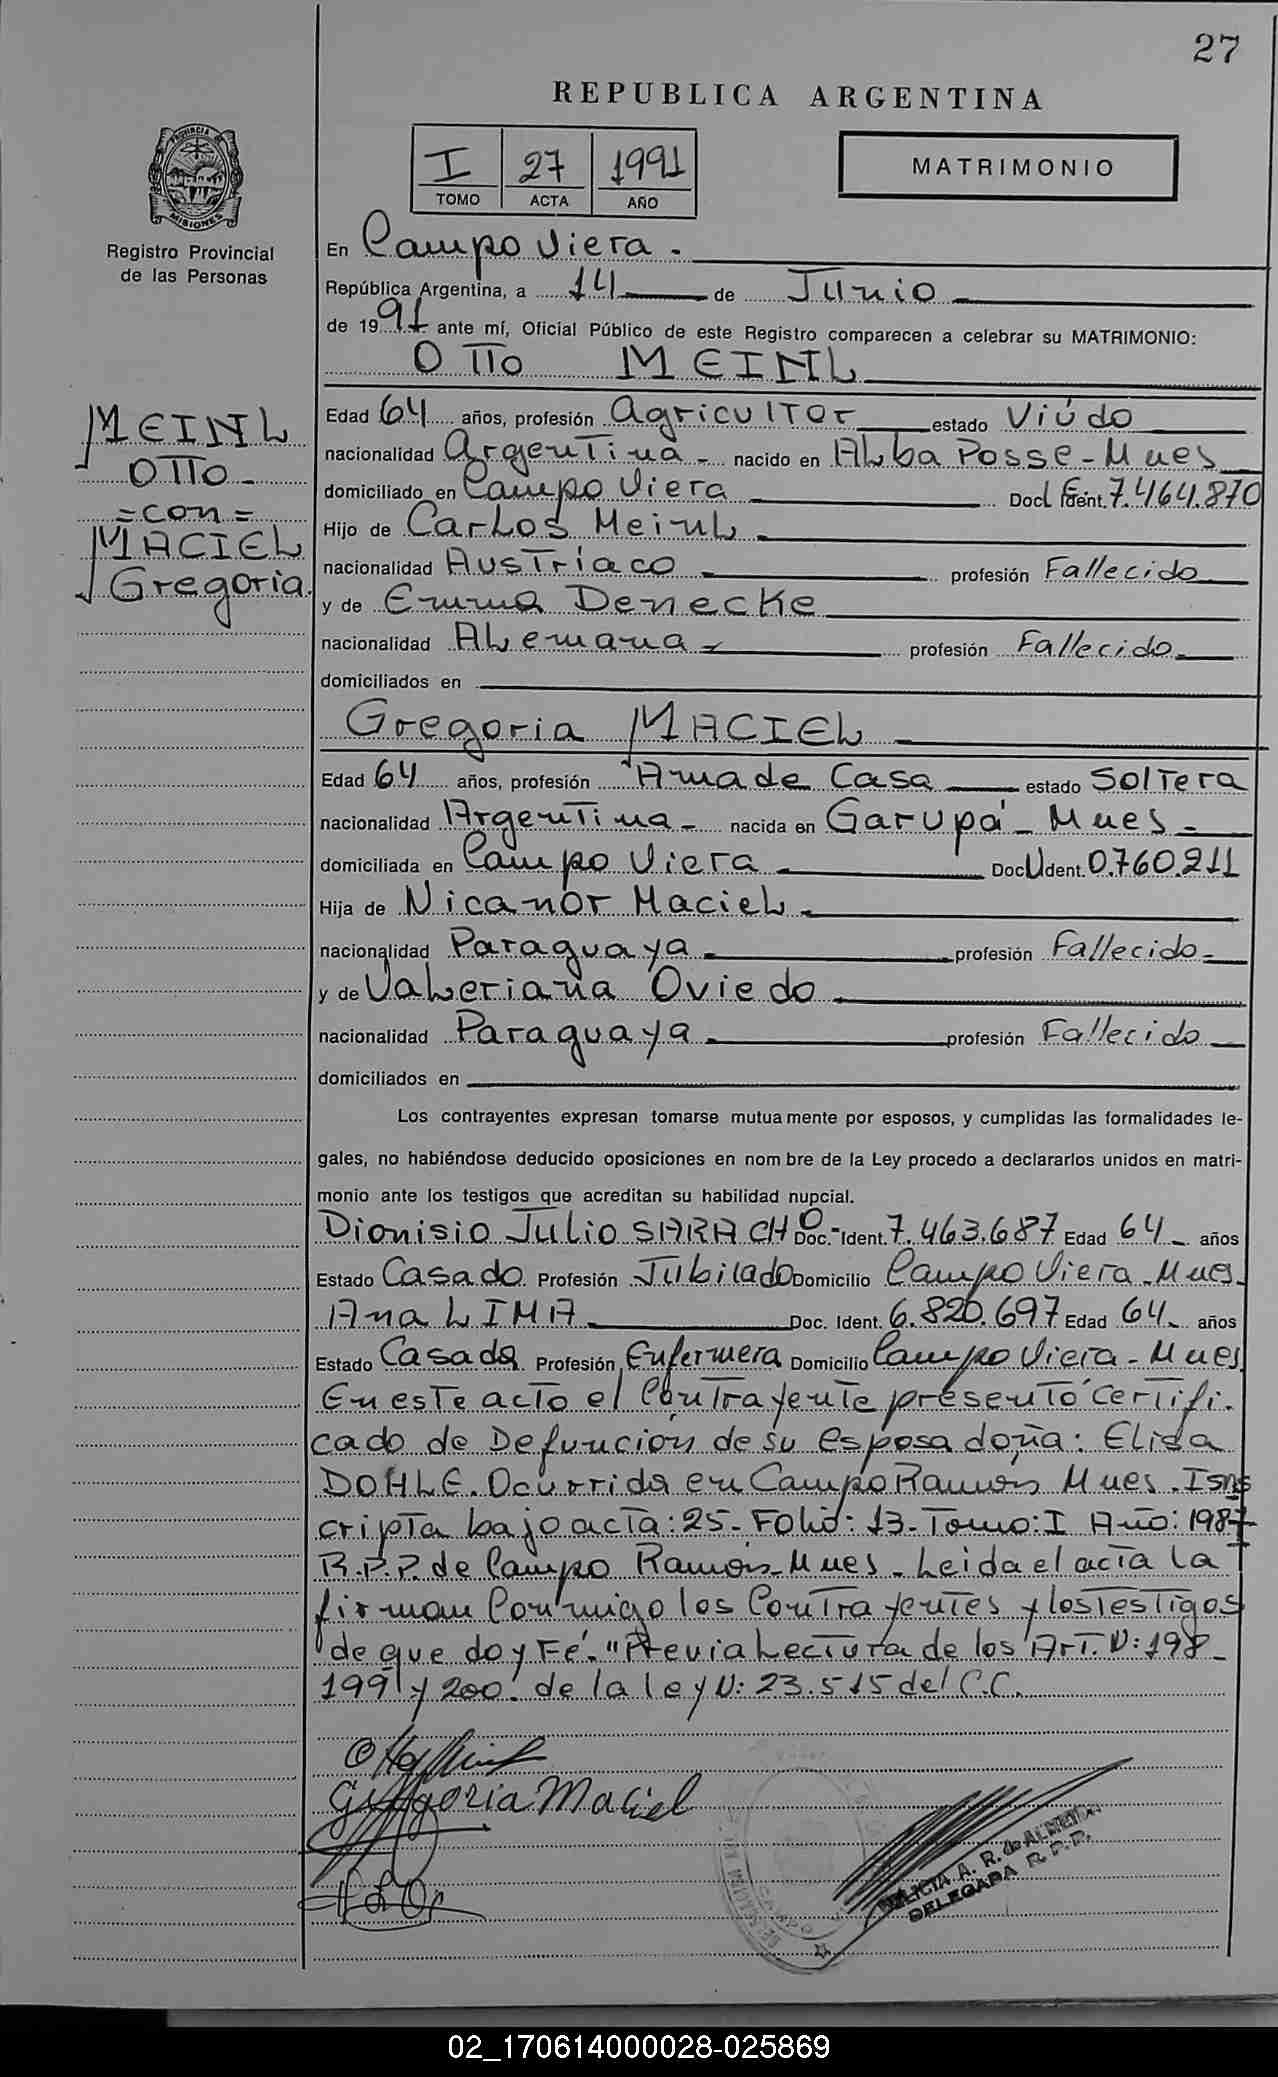 27
REPUBLICA ARGENTINA
I 27 1991
TOMO ACTA AÑO
MATRIMONIO
PROVINCIA DE
MISIONES
Registro Provincial
de las Personas
En Campo Viera.
República Argentina, a 14 de Junio
de 1991 ante mí, Oficial Público de este Registro comparecen a celebrar su MATRIMONIO:
OTTO MEINL
MEINL
OTTO
=con=
MACIEL
Gregoria
Edad 64 años, profesión Agricultor estado Viúdo
nacionalidad Argentina nacido en Alba Posse - Mnes
domiciliado en Campo Viera Doc. Ident. 7.464.870
Hijo de Carlos Meinl
nacionalidad Austríaco profesión Fallecido
y de Emma Denecke
nacionalidad Alemana profesión Fallecido
domiciliados en
Gregoria MACIEL
Edad 64 años, profesión Ama de Casa estado Soltera
nacionalidad Argentina nacida en Garupá - Mnes
domiciliada en Campo Viera Doc. Ident. 0.760.211
Hija de Nicanor Maciel
nacionalidad Paraguaya profesión Fallecido
y de Valeriana Oviedo
nacionalidad Paraguaya profesión Fallecido
domiciliados en
Los contrayentes expresan tomarse mutuamente por esposos, y cumplidas las formalidades le-
gales, no habiéndose deducido oposiciones en nombre de la Ley procedo a declararlos unidos en matri-
monio ante los testigos que acreditan su habilidad nupcial.
Dionisio Julio SARACHO Doc. Ident. 7.463.687 Edad 64 años
Estado Casado Profesión Jubilado Domicilio Campo Viera - Mnes.
Ana LIMA Doc. Ident. 6.820.697 Edad 64 años
Estado Casada Profesión Enfermera Domicilio Campo Viera - Mnes
En este acto el Contrayente presentó certifi-
cado de Defunción de su esposa doña: Elida
DOHLE. Ocurrida en Campo Ramón Mnes. Ins
cripta bajo acta: 25 - Folio: 13 - Tomo: I Año: 1987
R.P.P. de Campo Ramón - Mnes - Leida el acta la
firman Conmigo los Contrayentes y los Testigos
de que doy Fé. "Previa Lectura de los Art. N: 198 -
199 y 200 de la ley N: 23.515 del C.C.
Gregoria Maciel
FELICIA A. R. de ALMEIDA
DELEGADA R. P. P.
02_170614000028-025869